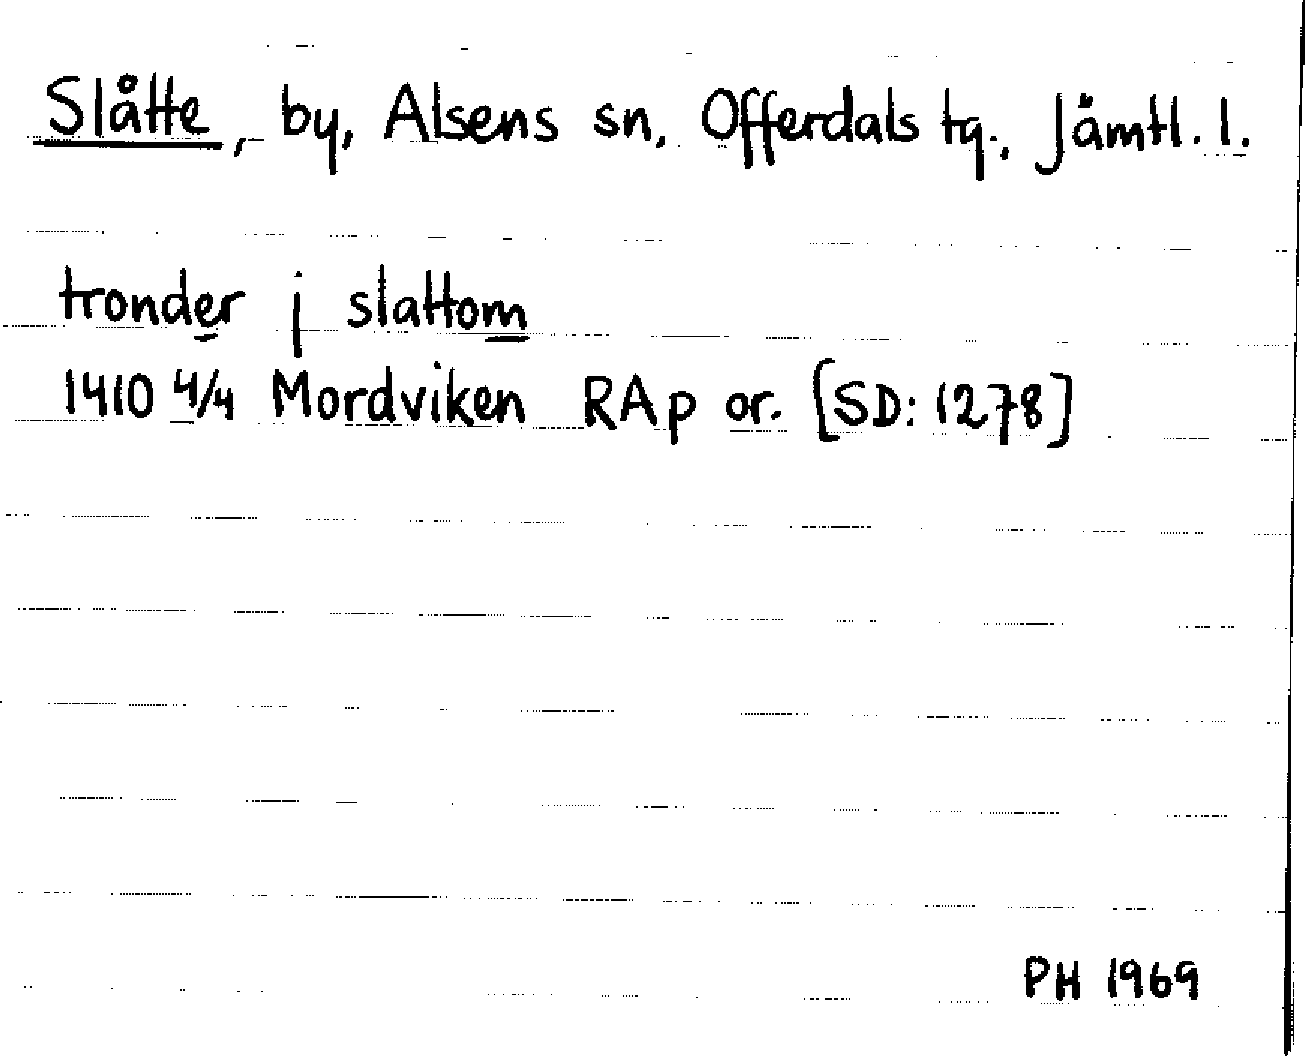 Slåtte, by, Alsens sn, Offerdals tg., Jämtl. l.
tronder j slattom
1410 4/4 Mordviken RAp or. [SD: 1278]
PH 1969